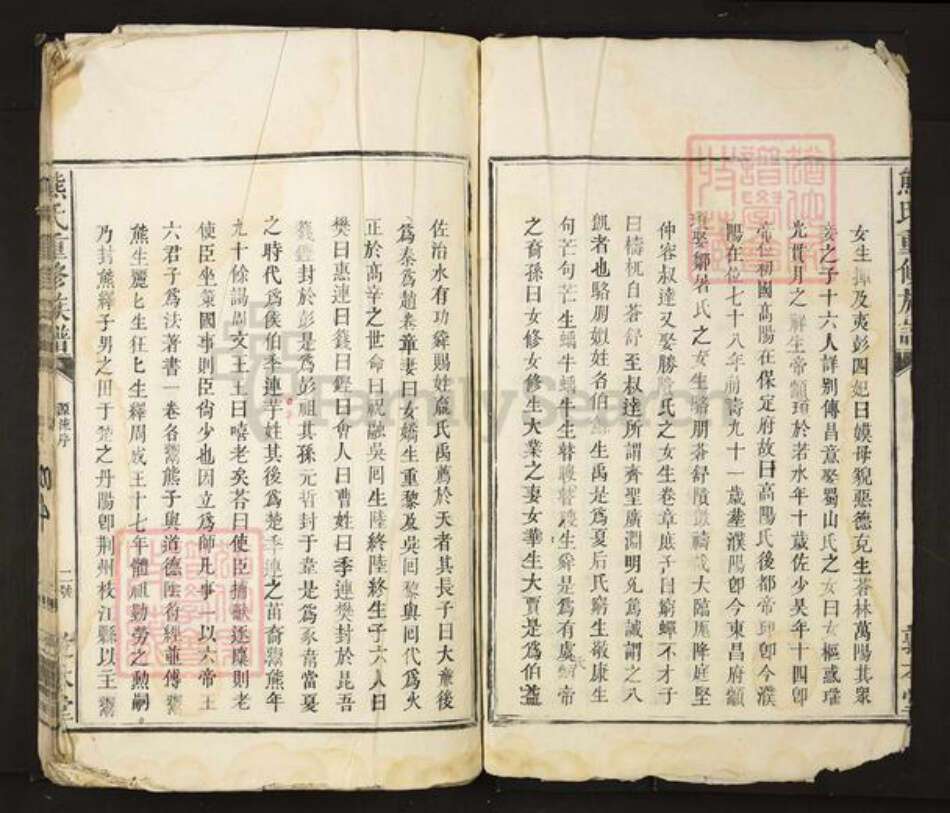 熊氏重修族譜
女生揮及夷彭四妃曰嫫母貌惡德充生蒼林萬陽其衆
妾之子十六人詳別傳昌意娶蜀山氏之女曰女樞感瑤
光貫月之祥生帝顓頊於若水年十歲佐少昊年十四卽
帝位初國高陽在保定府故曰高陽氏後都帝邱卽今濮
陽在位七十八年前壽九十一歲塟濮陽卽今東昌府顓
頊娶鄒屠氏之女生駱朋蒼舒隤敱禱戭大臨厖降庭堅
仲容叔達又娶勝隆氏之女生卷章庶子曰窮蟬不才子
曰檮杌自蒼舒至叔達所謂齊聖廣淵明允篤誠謂之八
凱者也駱朋姒姓名伯鯀生禹是爲夏后氏窮生敬康生
句芒句芒生蟜牛蟜牛生瞽瞍瞽瞍生舜是爲有虞氏帝
之裔孫曰女修女修生大業之妻女華生大賈是爲伯益
佐治水有功舜賜姓嬴氏禹薦於天者其長子曰大亷後
爲秦爲趙卷章妻曰女嬌生重黎及吳回黎與回代爲火
正於高辛之世命曰祝融吳回生陸終陸終生子六人曰
樊曰惠連曰籛曰鏗曰會人曰曹姓曰季連樊封於昆吾
籛鏗封於彭是爲彭祖其孫元哲封于韋是爲豕韋當夏
之時代爲侯伯季連芈姓其後爲楚季連之苗裔鬻熊年
九十餘謁周文王王曰嘻老矣荅曰使臣捕獸逐麋則老
使臣坐策國事則臣尙少也因立爲師凡事一以六帝王
六君子爲法著書一卷名鬻熊子與道德陰符經並傳鬻
熊生麗匕生狂匕生繹周成王十七年體祖勤勞之勲嗣
乃封熊繹子男之田于楚之丹陽卽荆州枝江縣以王鬻
熊氏重修族譜
源流序
二號